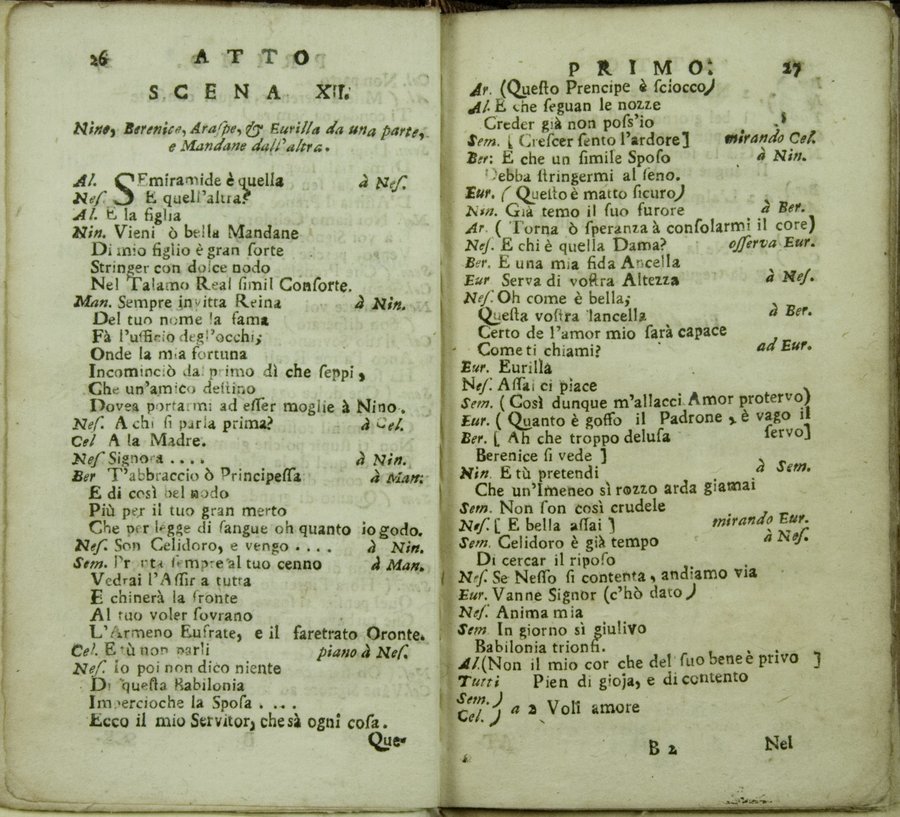 26 ATTO
SCENA XII.
Nino, Berenice, Araſpe, & Eurilla da una parte,
e Mandane dall'altra.
Al. SEmiramide è quella à Neſ.
Neſ E quell'altra?
Al. E la figlia
Nin. Vieni ò bella Mandane
Di mio figlio è gran ſorte
Stringer con dolce nodo
Nel Talamo Real ſimil Conſorte.
Man. Sempre invitta Reina à Nin.
Del tuo nome la fama
Fà l'ufficio degl'occhi;
Onde la mia fortuna
Incominciò dal primo dì che ſeppi,
Che un'amico deſtino
Dovea portarmi ad eſſer moglie à Nino.
Neſ. A chi ſi parla prima? à Cel.
Cel A la Madre.
Neſ Signora .... à Nin.
Ber T'abbraccio ò Principeſſa à Man:
E di così bel nodo
Più per il tuo gran merto
Che per legge di ſangue oh quanto io godo.
Neſ. Son Celidoro, e vengo .... à Nin.
Sem. Pronta ſempre al tuo cenno à Man.
Vedrai l'Aſſiria tutta
E chinerà la fronte
Al tuo voler ſovrano
L'Armeno Eufrate, e il faretrato Oronte.
Cel. E tù non parli piano à Neſ.
Neſ. Io poi non dico niente
Di queſta Babilonia
Impercioche la Spoſa ....
Ecco il mio Servitor, che sà ogni coſa.
Que-
PRIMO. 27
Ar. (Queſto Prencipe è ſciocco)
Al. E che ſeguan le nozze
Creder già non poſs'io
Sem. [ Creſcer ſento l'ardore] mirando Cel.
Ber: E che un ſimile Spoſo à Nin.
Debba ſtringermi al ſeno.
Eur. (Queſto è matto ſicuro)
Nin. Già temo il ſuo furore à Ber.
Ar. ( Torna ò ſperanza à conſolarmi il core)
Neſ. E chi è quella Dama? oſſerva Eur.
Ber. E una mia fida Ancella
Eur Serva di voſtra Altezza à Neſ.
Neſ. Oh come è bella;
Queſta voſtra lancella à Ber.
Certo de l'amor mio ſarà capace
Come ti chiami? ad Eur.
Eur. Eurilla
Neſ. Aſſai ci piace
Sem. ( Così dunque m'allacci Amor protervo)
Eur. ( Quanto è goffo il Padrone, è vago il
ſervo]
Ber. [ Ah che troppo deluſa
Berenice ſi vede ]
Nin. E tù pretendi à Sem.
Che un'Imeneo sì rozzo arda giamai
Sem. Non ſon così crudele
Neſ. [ E bella aſſai ] mirando Eur.
Sem. Celidoro è già tempo à Neſ.
Di cercar il ripoſo
Neſ. Se Neſſo ſi contenta, andiamo via
Eur. Vanne Signor (c'hò dato)
Neſ. Anima mia
Sem In giorno sì giulivo
Babilonia trionfi.
Al. (Non il mio cor che del ſuo bene è privo ]
Tutti Pien di gioja, e di contento
Sem. )
Cel. ) a 2 Voli amore
B 2 Nel